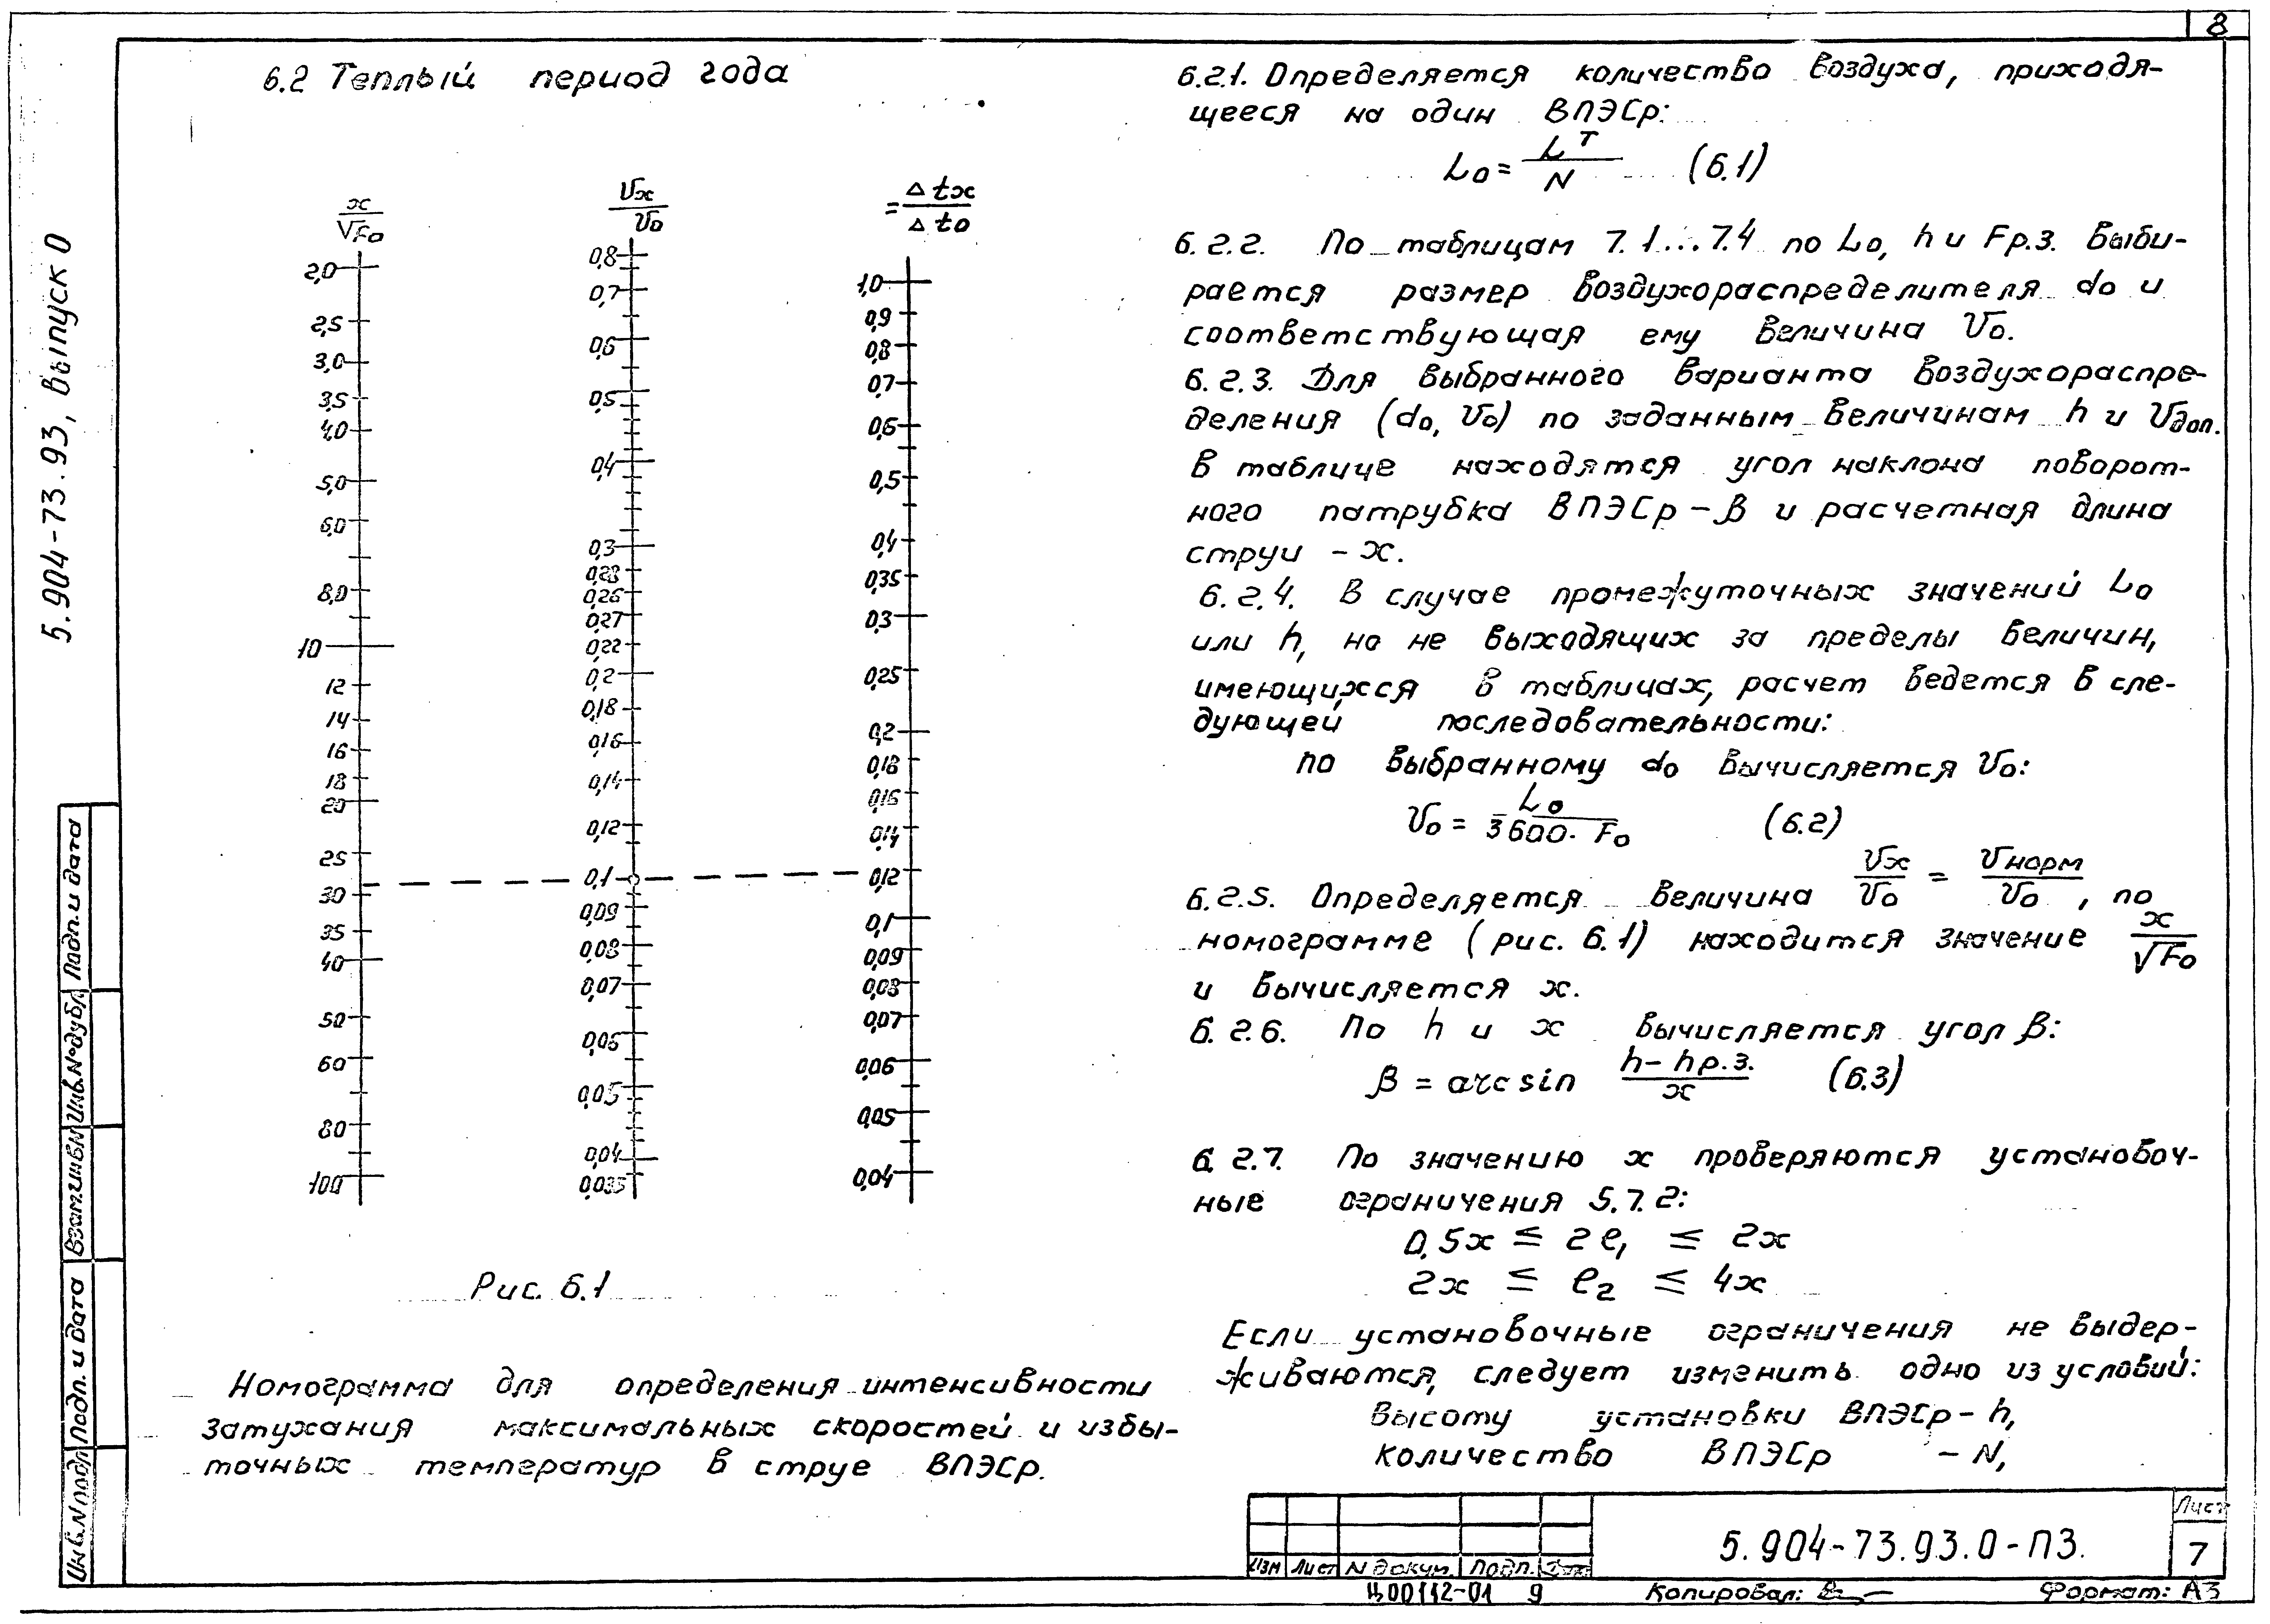 8
5.904-73.93, выпуск 0
6.2 Теплый период года
x/√Fo
2,0
2,5
3,0
3,5
4,0
5,0
6,0
8,0
10
12
14
16
18
20
25
30
35
40
50
60
80
100
Vx/Vo
0,8
0,7
0,6
0,5
0,4
0,3
0,28
0,26
0,27
0,22
0,2
0,18
0,16
0,14
0,12
0,1
0,09
0,08
0,07
0,06
0,05
0,04
0,035
= Δtx/Δto
1,0
0,9
0,8
0,7
0,6
0,5
0,4
0,35
0,3
0,25
0,2
0,18
0,16
0,14
0,12
0,1
0,09
0,08
0,07
0,06
0,05
0,04
Рис. 6.1
Номограмма для определения интенсивности
затухания максимальных скоростей и избы-
точных температур в струе ВПЭСр.
6.2.1. Определяется количество воздуха, приходя-
щееся на один ВПЭСр:
Lo = L^T/N (6.1)
6.2.2. По таблицам 7.1...7.4 по Lo, h и Fр.з. выби-
рается размер воздухораспределителя do и
соответствующая ему величина Vo.
6.2.3. Для выбранного варианта воздухораспре-
деления (do, Vo) по заданным величинам h и Vдоп.
в таблице находятся угол наклона поворот-
ного патрубка ВПЭСр – β и расчетная длина
струи – x.
6.2.4. В случае промежуточных значений Lo
или h, но не выходящих за пределы величин,
имеющихся в таблицах, расчет ведется в сле-
дующей последовательности:
по выбранному do вычисляется Vo:
Vo = Lo/3600·Fo (6.2)
6.2.5. Определяется величина Vx/Vo = Vнорм/Vo, по
номограмме (рис. 6.1) находится значение x/√Fo
и вычисляется x.
6.2.6. По h и x вычисляется угол β:
β = arcsin h-hр.з./x (6.3)
6.2.7. По значению x проверяются установоч-
ные ограничения 5.7.2:
0,5x ≤ 2ℓ1 ≤ 2x
2x ≤ ℓ2 ≤ 4x
Если установочные ограничения не выдер-
живаются, следует изменить одно из условий:
высоту установки ВПЭСр – h,
количество ВПЭСр – N,
Подп. и дата
Инв.№дубл
Взам.инв.№
Подп. и дата
Инв.№подл
Изм Лист № докум. Подп. Дата
5.904-73.93.0-ПЗ.
Лист
7
Ц00112-01 9
Копировал:
Формат: А3